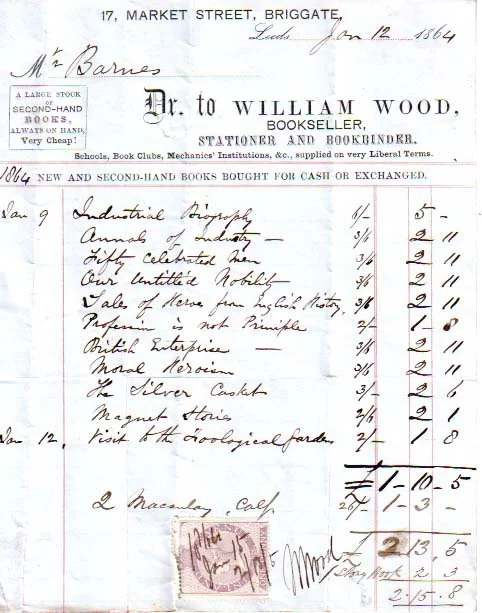 17, MARKET STREET, BRIGGATE,
Leeds Jan 12 1864
Mr Barnes
A LARGE STOCK
OF
SECOND-HAND
BOOKS,
ALWAYS ON HAND,
Very Cheap!
Dr. to WILLIAM WOOD,
BOOKSELLER,
STATIONER AND BOOKBINDER.
Schools, Book Clubs, Mechanics' Institutions, &c., supplied on very Liberal Terms.
1864 NEW AND SECOND-HAND BOOKS BOUGHT FOR CASH OR EXCHANGED.
Jan 9 Industrial Biography 6/- 5 -
Annals of Industry - 3/6 2 11
Fifty Celebrated Men 3/6 2 11
Our Untitled Nobility 3/6 2 11
Tales of Heroes from English History, 3/6 2 11
Profession is not Principle 2/- 1 - 8
British Enterprise - 3/6 2 11
Moral Heroism 3/6 2 11
The Silver Casket 3/- 2 6
Magnet Stories 2/6 2 1
Jan 12, Visit to the Zoological Gardens 2/- 1 8
£ 1 - 10 - 5
2 Macaulay, Calf 26/- 1 - 3 -
£ 2 . 13 . 5
2 3
2 . 15 . 8
Jan 15
W Wood